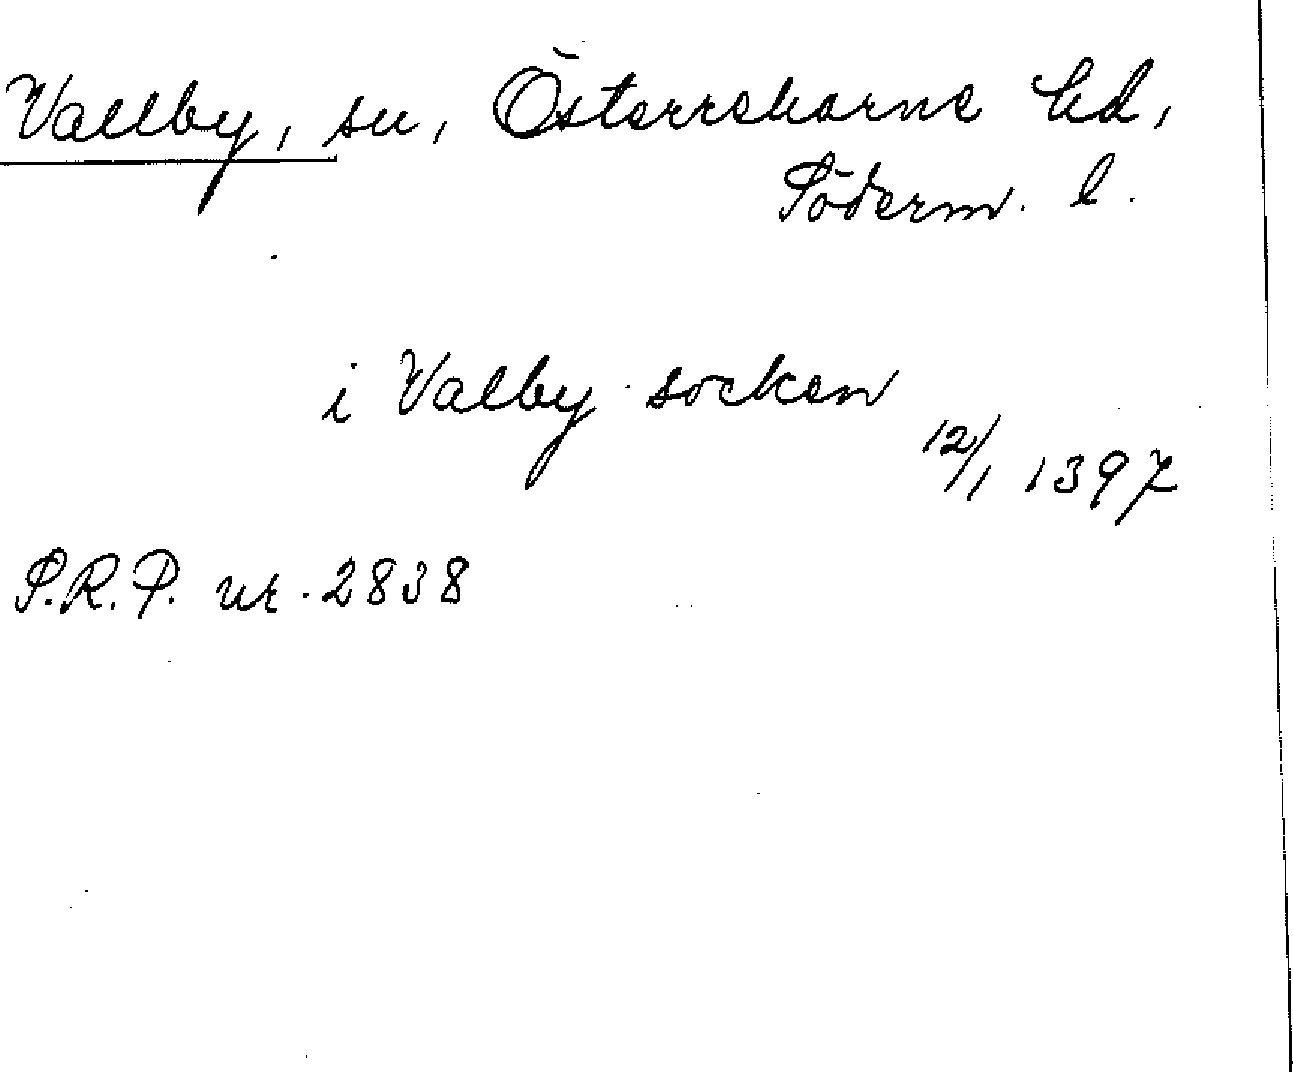 Vallby, sn, Österrekarne hd,
Söderm. l.
i Valby socken
12/1 1397
S.R.P. nr. 2838